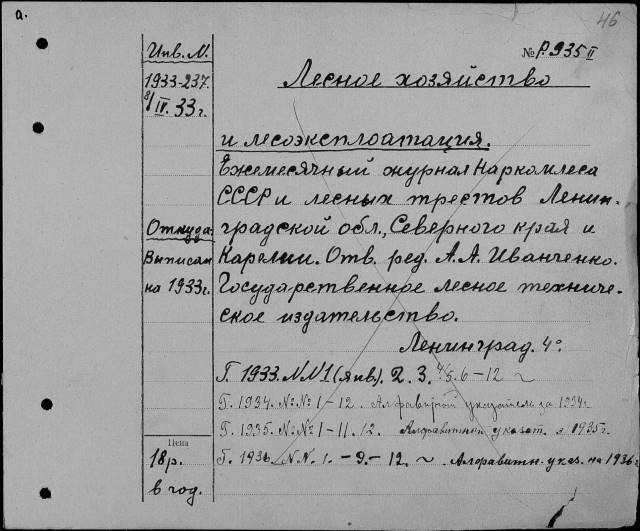 а.
46
Инв. N.
№ Р.935 II
1933-237.
8/IV.33г.
Лесное хозяйство
и лесоэксплоатация.
Ежемесячный журнал Наркомлеса
СССР и лесных трестов Ленин-
Откуда:
градской обл., Северного края и
Выписан
Карелии. Отв. ред. А.А. Иванченко.
на 1933г.
Государственное лесное техниче-
ское издательство.
Ленинград. 4°.
Г. 1933. NN1 (янв). 2. 3. 4/5. 6-12
Г. 1934. №№ 1-12. Алфавитной указатель за 1934г
Г. 1935. №№ 1-11. 12. Алфавитной указат. з 1935г.
Цена
18р.
в год.
Г. 1936 NN. 1. -9.- 12. Алфавитн. указ. на 1936г